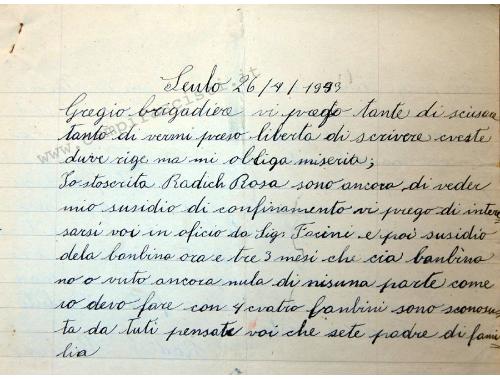 Seulo 26/4/1943
Gregio brigadiere vi prego tante di sciusare
tanto di vermi preso liberta di scrivere cveste
duve rige ma mi obliga miseria;
Io stoscrita Radich Rosa sono ancora di veder
mio susidio di confinamento vi prego di intere
sarsi voi in oficio da Sigr Facini e poi susidio
dela banbina ora e tre 3 mesi che cia banbina
no o vuto ancora nula di nisuna parte come
io devo fare con 4 cvatro fanbini sono sconosu
ta da tuti pensate voi che sete padre di fami
lia